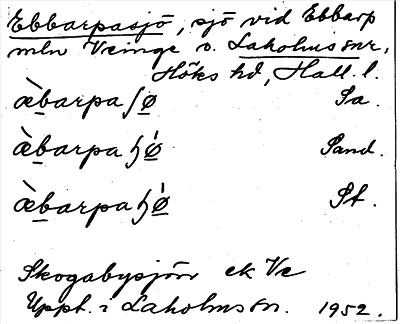 Ebbarpasjö, sjö vid Ebbarp
mln Veinge o. Laholms snr,
Höks hd, Hall. l.
æ̀barpaʃø Sa.
æ̀barpaɧǿ Sand.
æ̀barpaɧǿ St.
Skogabysjön ek Ve
Uppt. i Laholms sn. 1952.